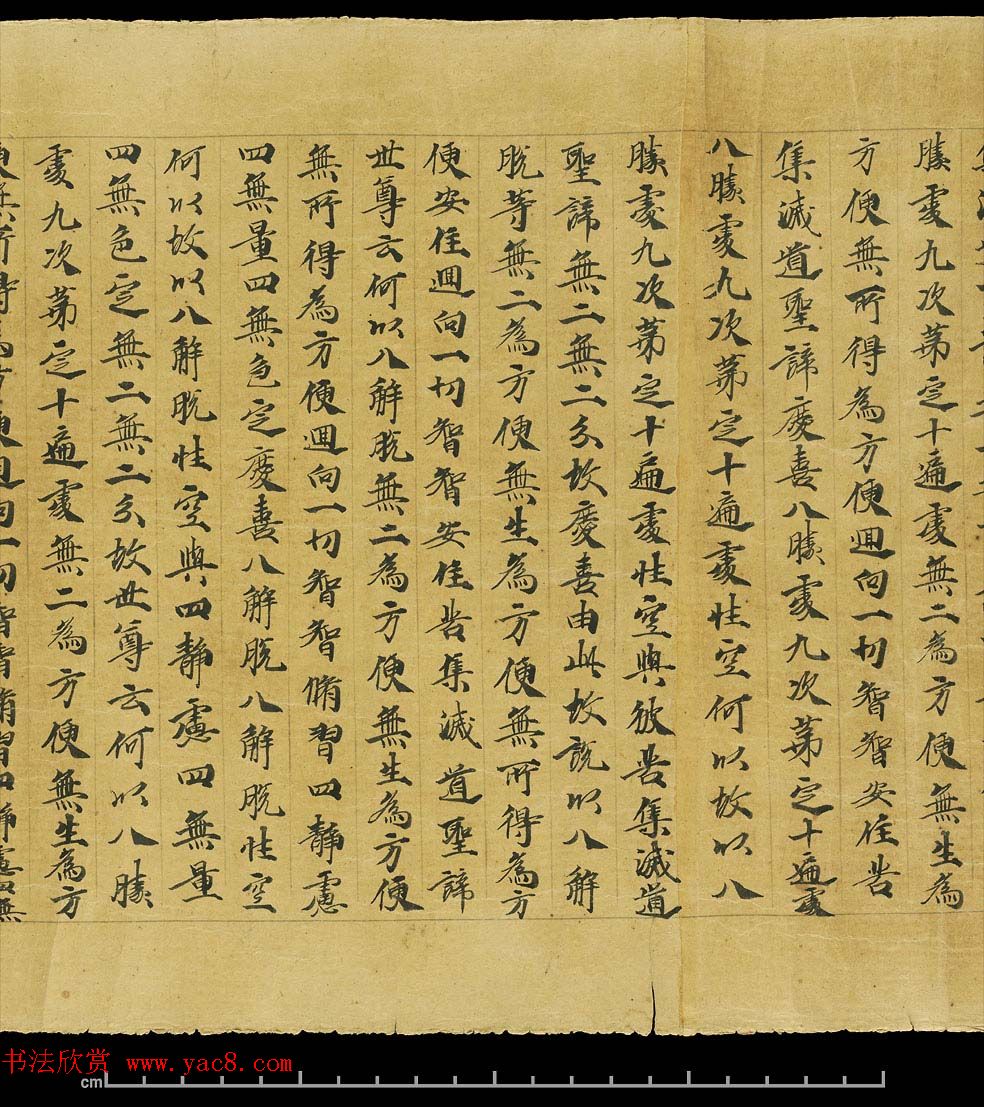 勝處九次苐定十遍處無二為方便無生為
方便無所得為方便迴向一切智智安住苦
集滅道聖諦慶喜八勝處九次苐定十遍處
八勝處九次苐定十遍處性空何以故以八
勝處九次苐定十遍處性空與彼苦集滅道
聖諦無二無二分故慶喜由此故說以八解
脫等無二為方便無生為方便無所得為方
便安住迴向一切智智安住苦集滅道聖諦
世尊云何以八解脫無二為方便無生為方便
無所得為方便迴向一切智智脩習四靜慮
四無量四無色定慶喜八解脫八解脫性空
何以故以八解脫性空與四靜慮四無量
四無色定無二無二分故世尊云何以八勝
處九次苐定十遍處無二為方便無生為方
書法欣赏 www.yac8.com
cm